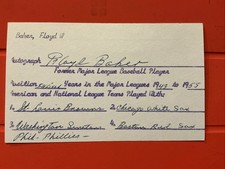 Baker, Floyd W
Autograph Floyd Baker
Former Major League Baseball Player
Position Years in the Major Leagues 1943 to 1955
American and National League Teams Played With:
1. St. Louis Browns 2. Chicago White Sox
3. Washington Senators 4. Boston Red Sox
Phil- Phillies-